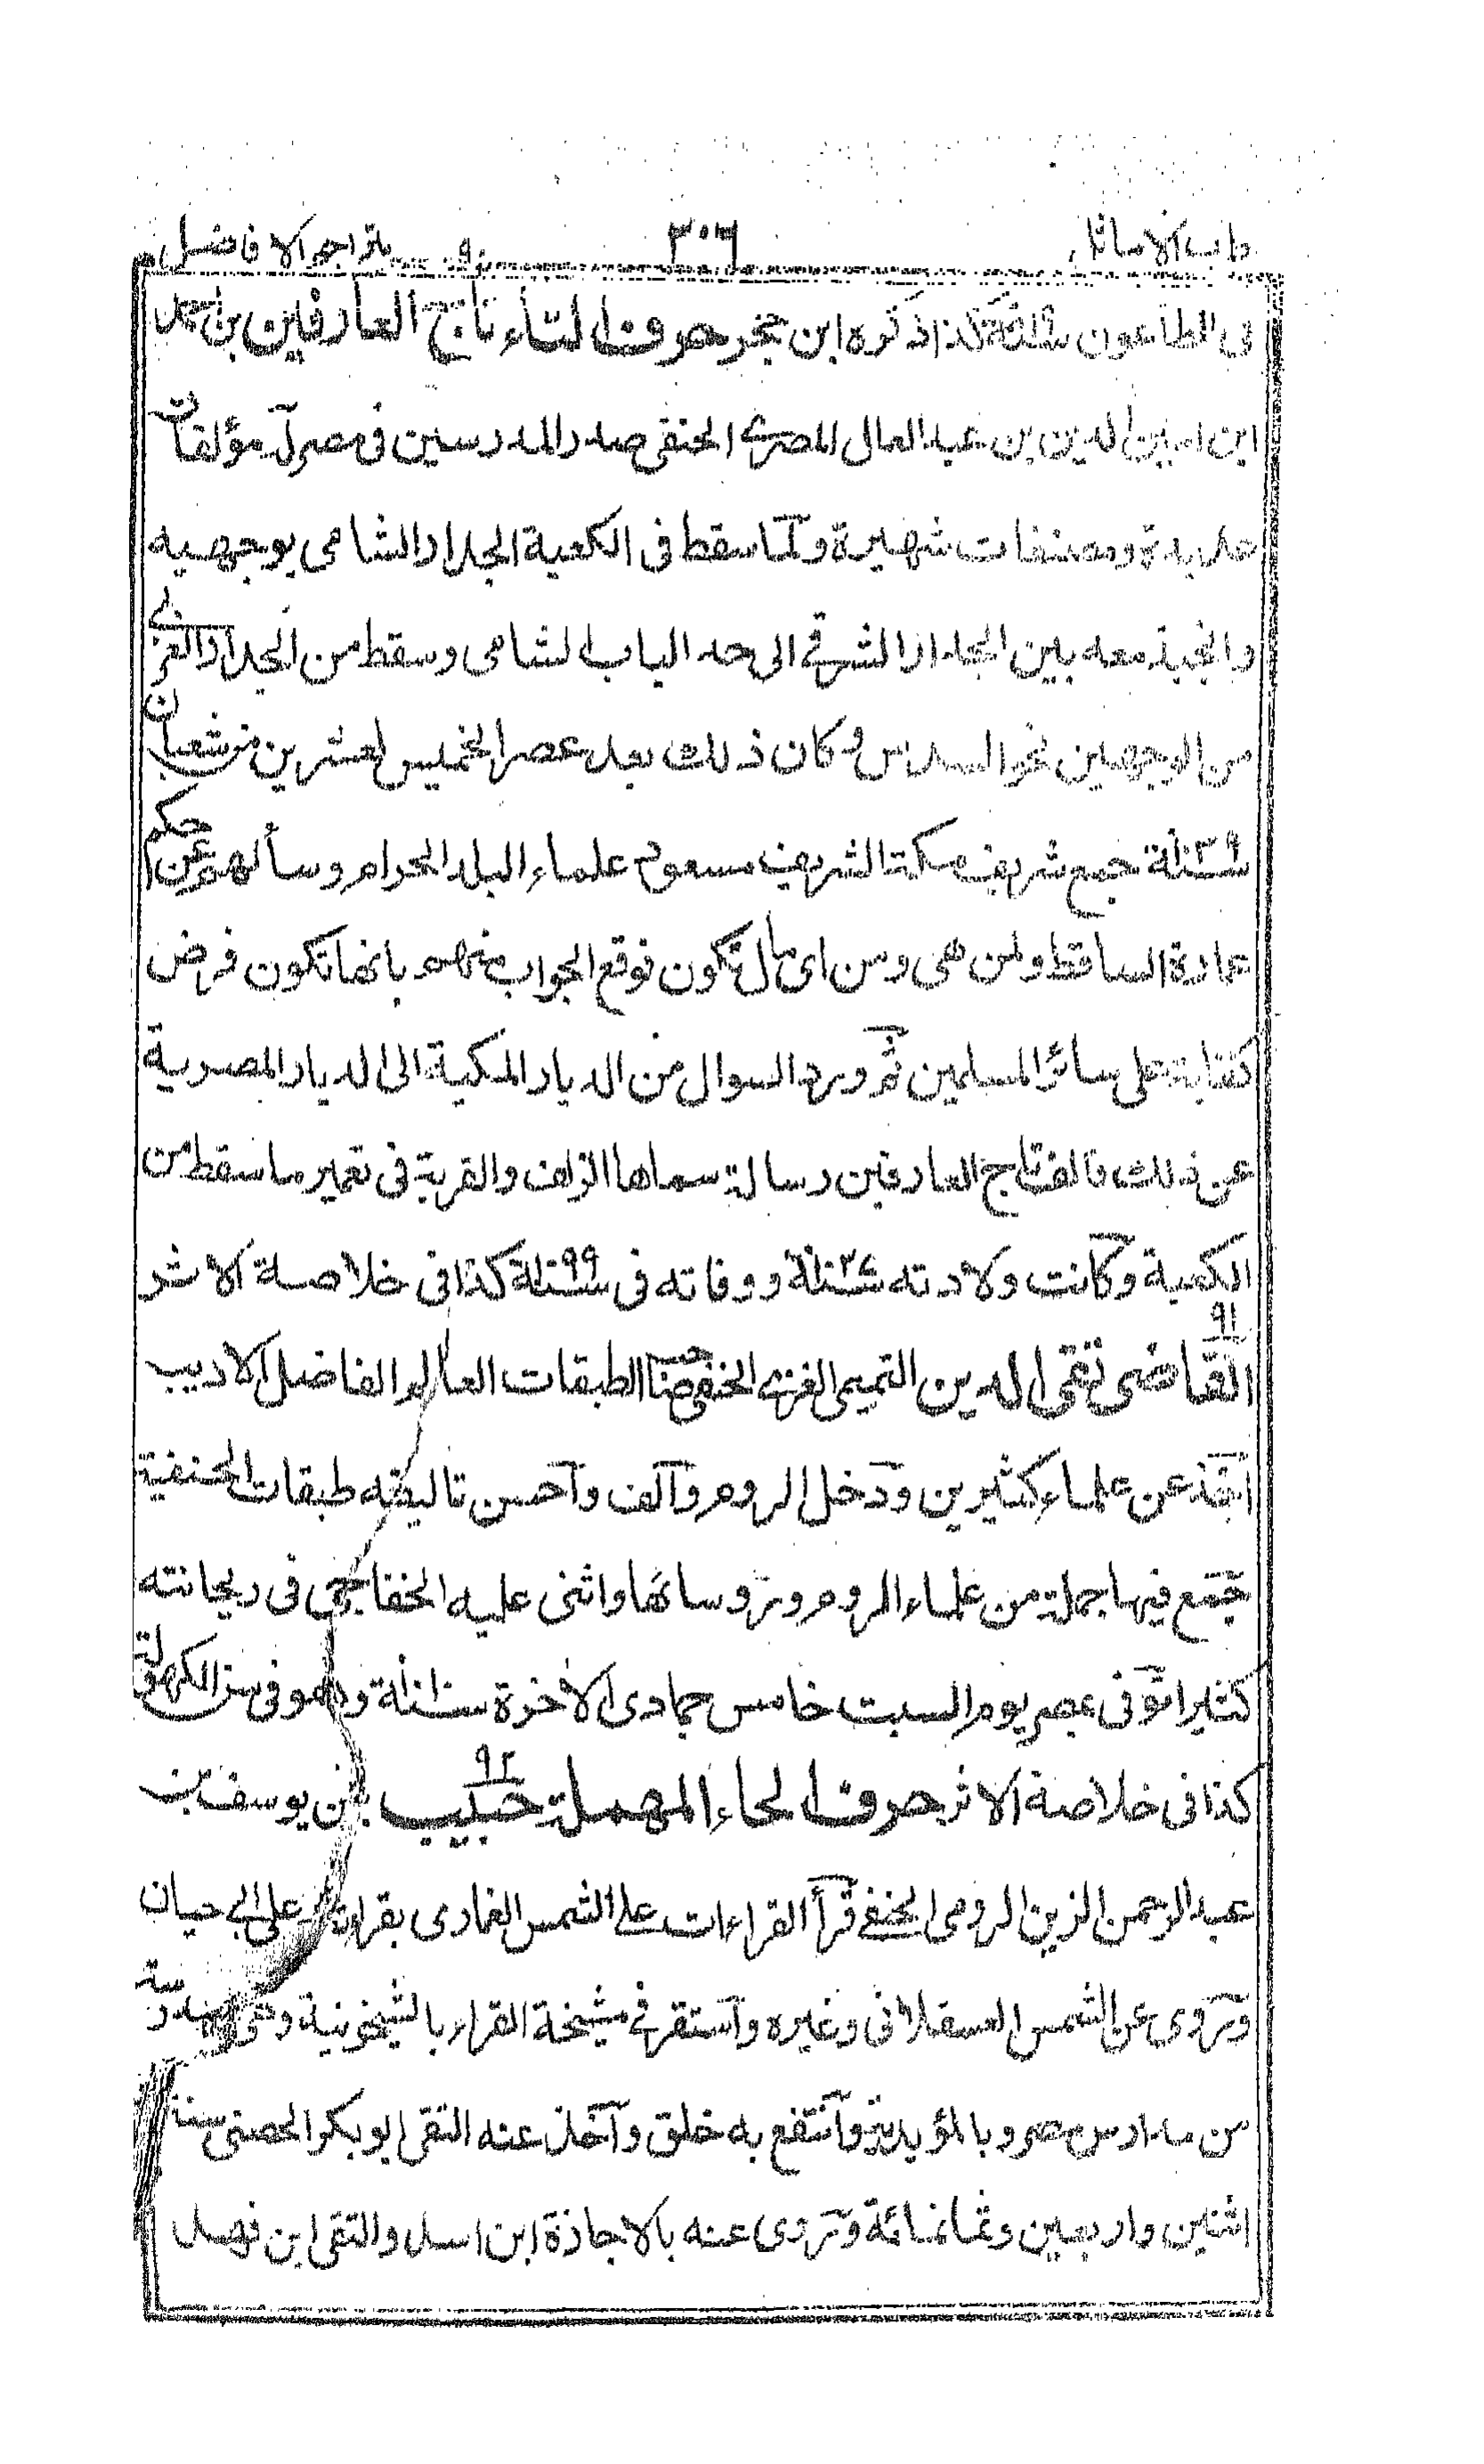 طرب الاماثل ٣٠٦ بتراجم الافاضل
فى الطاعون كذا ذكره ابن حجر حرف التاء تاج العارفين بن محمد
ابن امين الدين بن عبد العال المصرى الحنفى صدر المدرسين فى مصر له مؤلفات
عديدة ومصنفات شهيرة ولما سقط فى الكعبة الجدار الشامى بوجهيه
وانجبذ معه بين الجدار الشرقى الى حد الباب الشامى وسقط من الجدار الغربى
من الوجهين نحو السدس وكان ذلك بعد عصر الخميس لعشرين من شعبان
سنة ١٠٣٩ جمع شريف مكة الشريف مسعود علماء البلد الحرام وسألهم عن حكم
عمارة الساقط ولمن هى ومن اى مال تكون فوقع الجواب منهم بانها تكون فرض
كفاية على سائر المسلمين ثم ورد السوال من الديار المكية الى الديار المصرية
عن ذلك فالف تاج العارفين رسالة سماها الزلف والقربة فى تعمير ما سقط من
الكعبة وكانت ولادته ووفاته فى كذا فى خلاصة الاثر
٩١
القاضى تقى الدين التميمى الغزى الحنفى صاحب الطبقات العالم الفاضل الاديب
اخذ عن علماء كثيرين ودخل الروم وآلف وآحسن تاليفه طبقات الحنفية
جمع فيها جملة من علماء الروم ورؤسائها واثنى عليه الخفاجى فى ريحانته
كثيرا توفى عصر يوم السبت خامس جمادى الاخرة وهو فى سن الكهولة
كذا فى خلاصة الاثر حرف الحاء المهملة ٩٢ حبيب بن يوسف بن
عبد الرحمن الزين الرومى الحنفى قرأ القراءات على الشمس الغمارى بقراءته على ابى حيان
وروى عن الشمس العسقلانى وغيره وآستقر فى مشيخة القراء بالشيخونية وهى مدرسة
من مدارس مصر وبالمؤيدية وآنتفع به خلق وآخذ عنه التقى ابو بكر الحصنى سنة
اثنين واربعين وثمانمائة وروى عنه بالاجازة ابن اسد والتقى ابن فهد